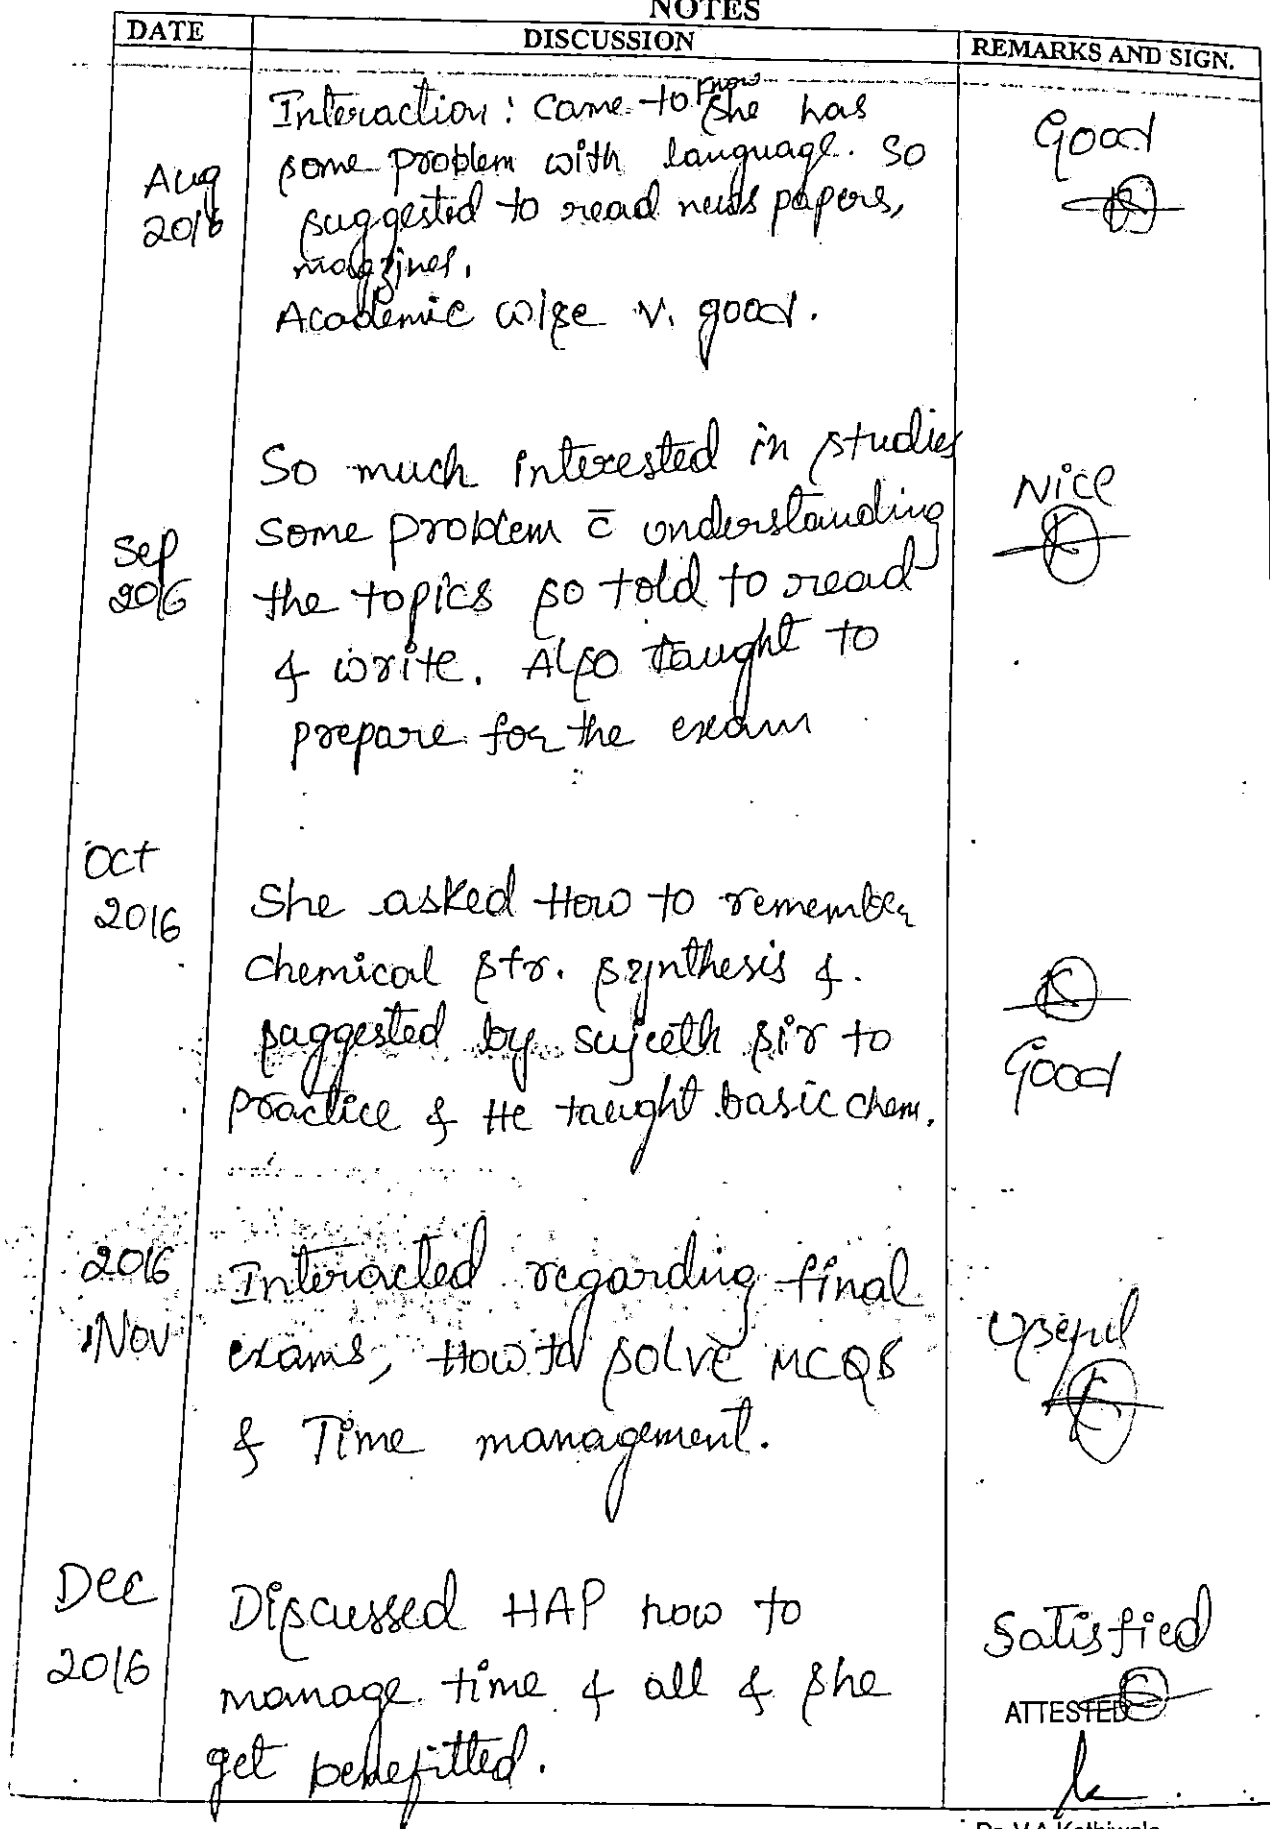 NOTES
DATE DISCUSSION REMARKS AND SIGN.
Interaction: Came to know she has
some problem with language. So
suggested to read news papers,
magzines.
Academic wise v. good.
Aug
2016
Good
So much interested in studies
Some problem c̄ understanding
the topics so told to read
& write. Also taught to
prepare for the exam
Sep
2016
Nice
Oct
2016
She asked How to remember
chemical str. synthesis &
suggested by sujeeth sir to
practice & He taught basic chem.
Good
2016
Nov
Interacted regarding final
exams, How to solve MCQs
& Time management.
Useful
Dec
2016
Discussed HAP how to
manage time & all & she
get benefitted.
Satisfied
ATTESTED
Dr. V.A Kothiwale